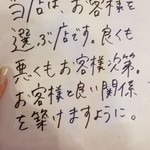 当店は、お客様を
選ぶ店です。良くも
悪くもお客様次第。
お客様と良い関係
を築けますように。